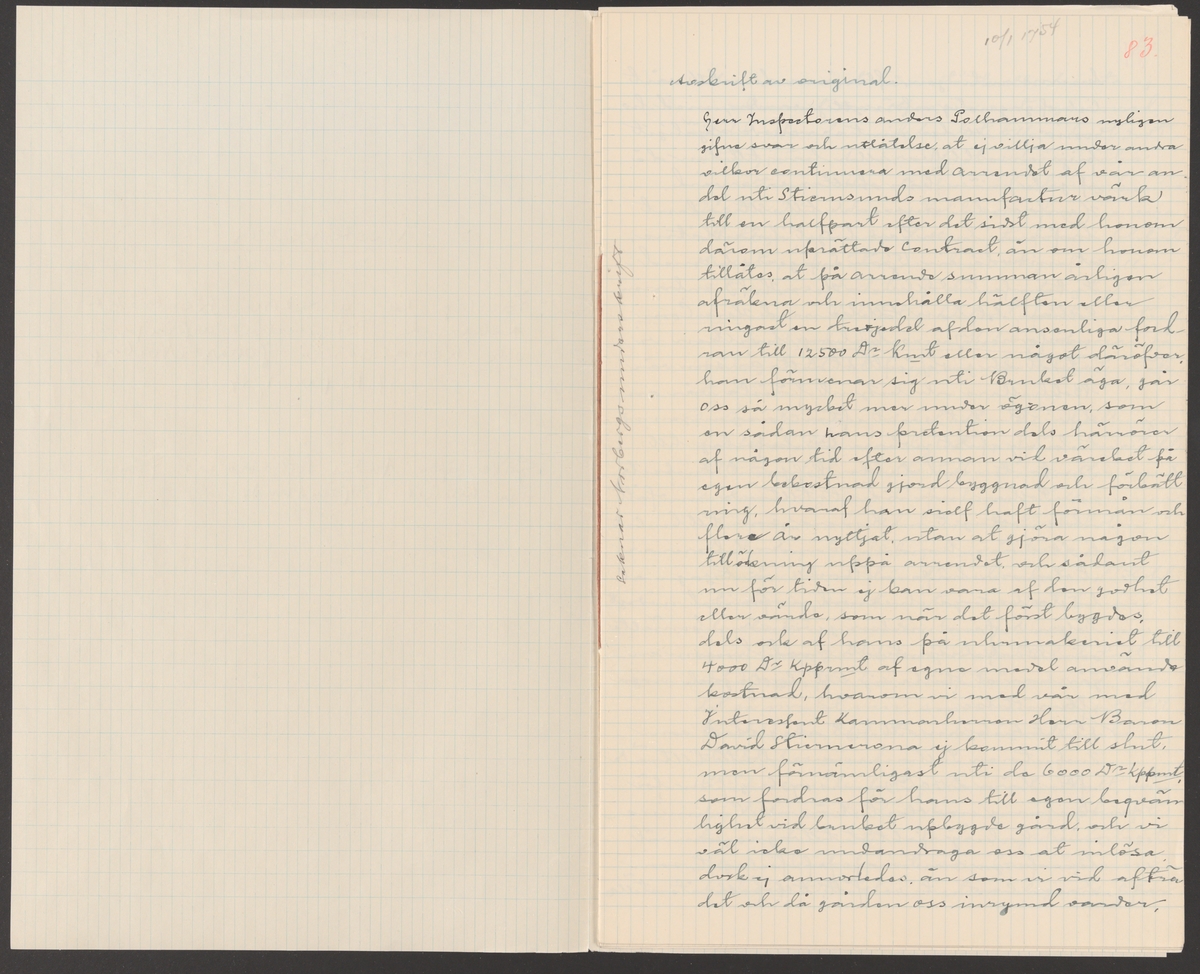 10/1 1754
83.
Avskrift av original.
Herr Inspectorens anders Polhammars nyligen
gifne svar och utlåtelse, at ej villja under andra
vilkor continuera med arrendet af vår an-
del uti Stiernsunds manufactur värk
till en halfpart efter det sidst med honom
därom uprättade contract, än om honom
tillåtes, at på arrende summan årligen
afräkna och innehålla hälften eller
ringast en trejedel af den ansenliga ford-
ran till 12500 Dr Kmt eller något däröfver,
han förmenar sig uti Bruket äga, går
oss så mycket mer under ögonen, som
en sådan hans pretention dels härrörer
af någon tid efter annan vid värcket på
egen bekostnad gjord byggnad och förbätt
ring, hvaraf han sielf haft förmån och
flere år nyttjat, utan at gjöra någon
tillökning uppå arrendet, och sådant
nu för tiden ej kan vara af den godhet
eller värde, som när det först bygdes,
dels ock af hans på uhrmakeriet till
4000 Dr Kpprmt af egne medel använde
kostnad, hvarom vi med vår med
Interessent Kammarherren Herr Baron
David Stiernerona ej kommit till slut,
men förnämligast uti de 6000 Dr Kppmt,
som fordras för hans till egen beqväm
lighet vid bruket upbygde gård, och vi
väl icke undandraga oss at inlösa,
dock ej annorledes, än som vi vid afträ
det och då gården oss inrymd varder,
saknar Norbergs underskrift